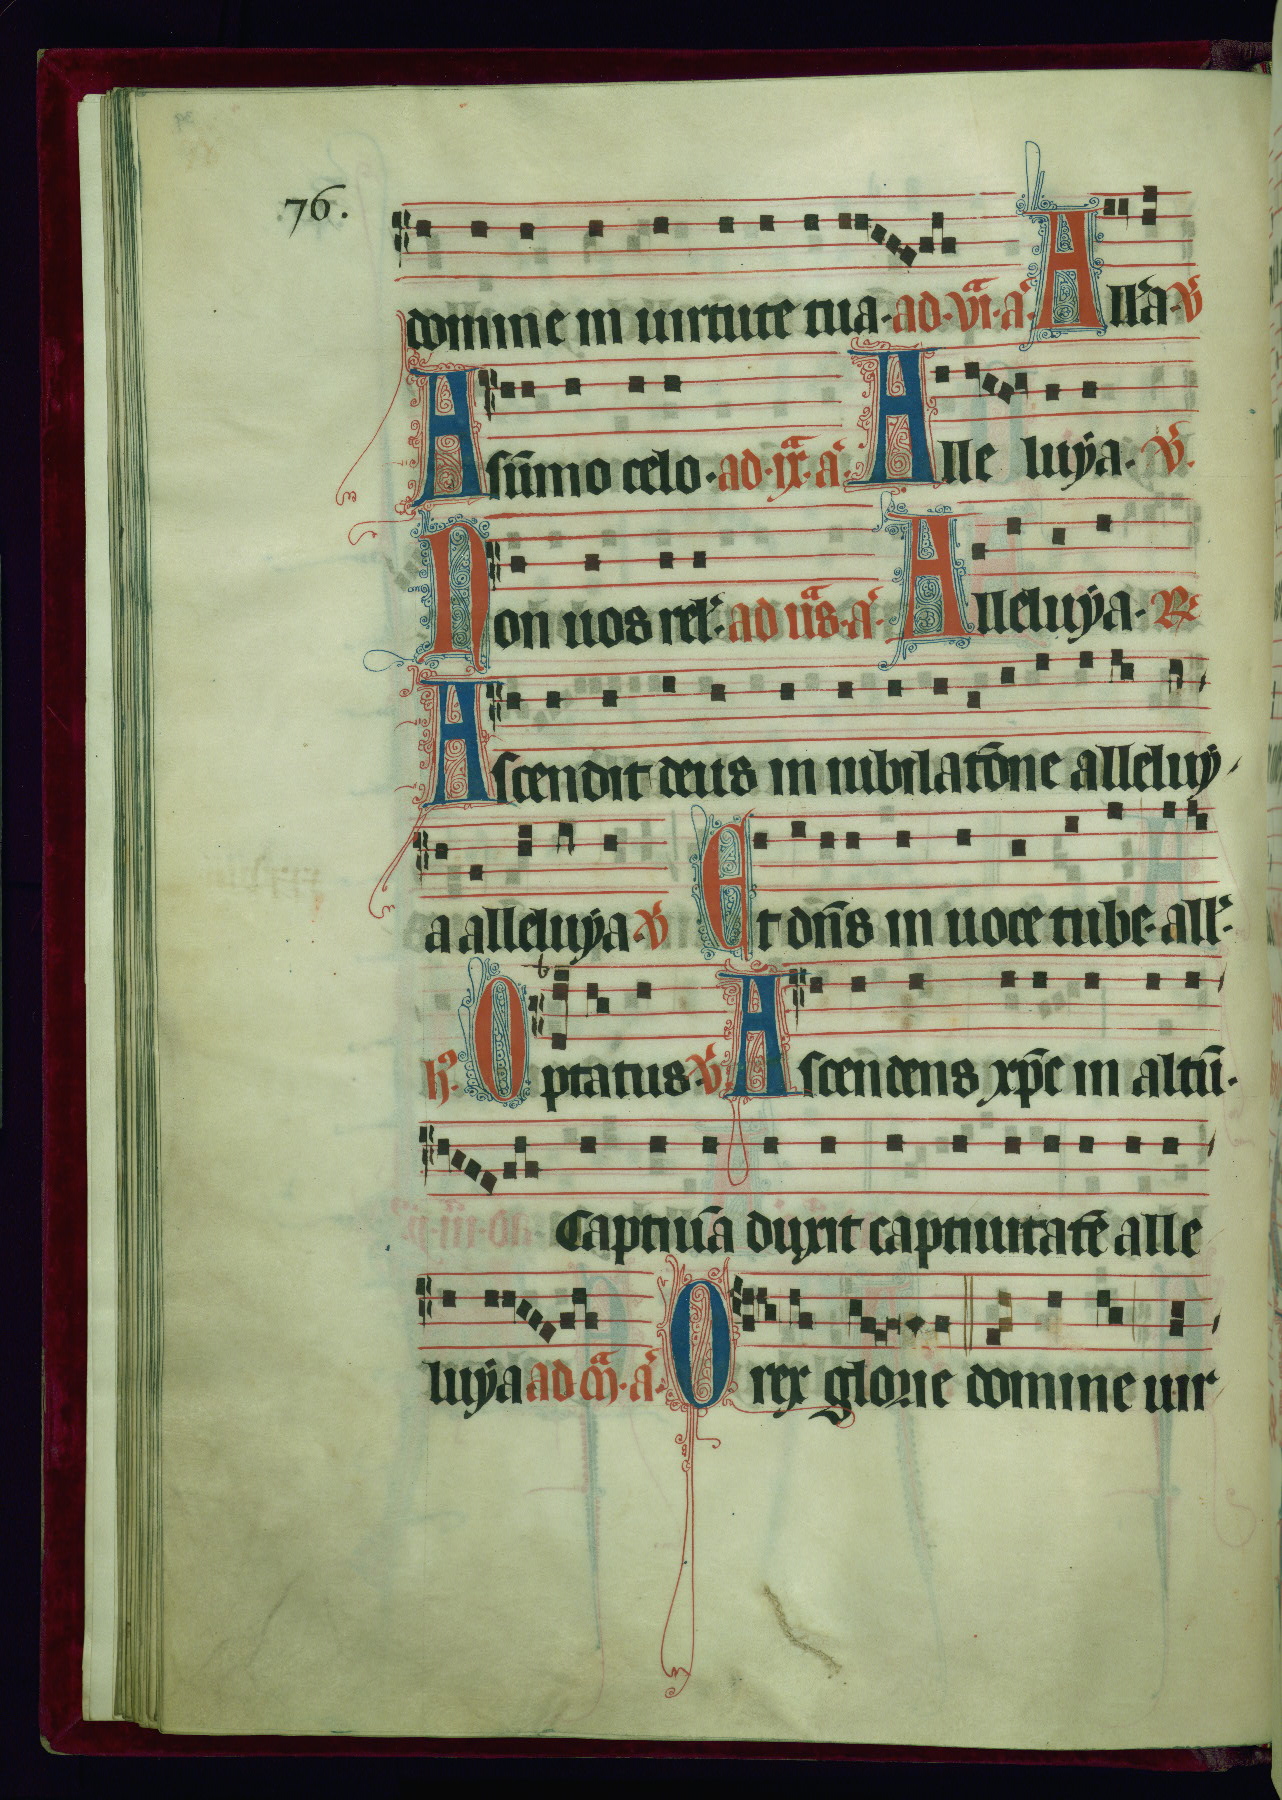 76.
domine in uirtute tua. ad. vi. a. All'a. V
A sūmo celo. ad. ix. a. Alle luÿa. V.
Non uos rel'. ad us. a. Alleluÿa. R
Ascendit deus in iubilatōne alleluÿ
a alleluÿa. V Et dn̄s in uoce tube. all'.
h. Optatus. V Ascendens xp̄c in altū.
Captiuā duxit captiuitatē alle
luÿa ad m. a. O rex glorie domine uir